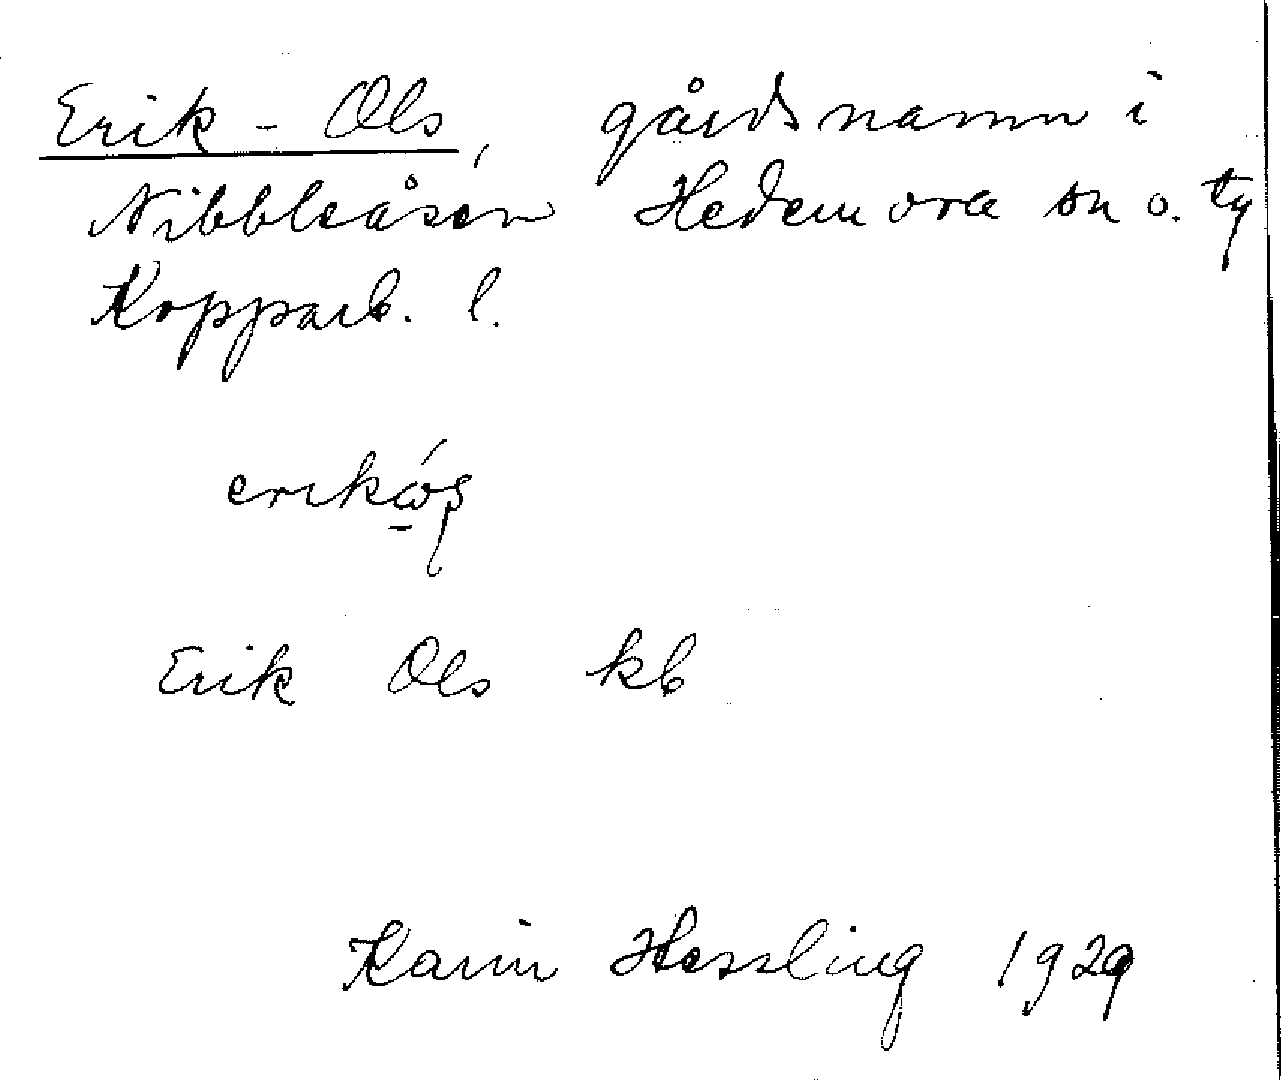 Erik - Ols, gårdsnamn i
Nibbleåsen Hedemora sn o. tg
Kopparb. l.
Erik Ols kb
Karin Hessling 1929